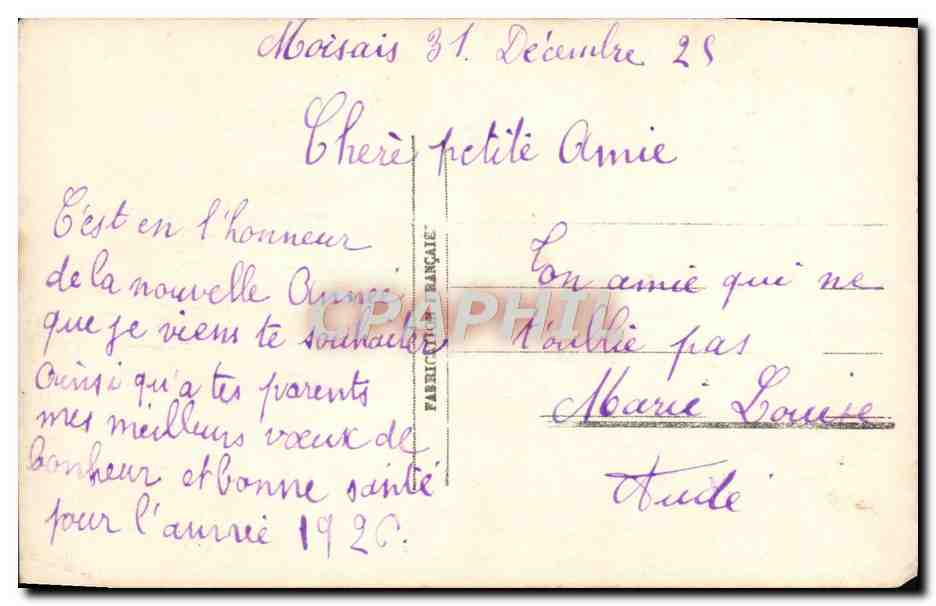 Moisais 31. Décembre 25
Cherè petité Amie
C'est en l'honneur
de la nouvelle Année
que je viens te souhaiter
Ainsi qu'a tes parents
mes meilleurs vœux de
bonheur et bonne santé
pour l'année 1926.
FABRICATION FRANÇAISE
CPAPHIL
Ton amie qui ne
t'oublie pas
Marie Louise
Audé